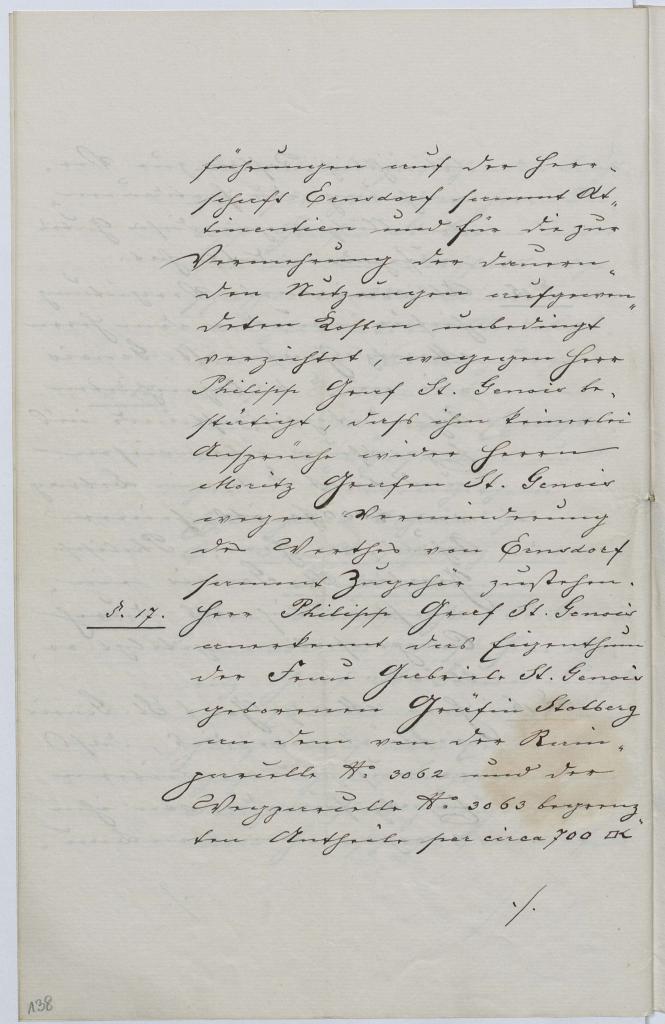 führungen auf der Herr-
schaft Ernsdorf sammt At-
tinentien und für die zur
Vermehrung der dauern-
den Nutzungen aufgewen-
deten Kosten unbedingt
verzichtet, wogegen Herr
Philipp Graf St. Genois be-
stätigt, dass ihm keinerlei
Ansprüche wider Herrn
Moritz Grafen St. Genois
wegen Verminderung
des Werthes von Ernsdorf
sammt Zugehör zustehen.
P. 17. Herr Philipp Graf St. Genois
anerkennt das Eigenthum
der Frau Gabriele St. Genois
geborenen Gräfin Stolberg
an dem von der Rain-
parcelle No. 3062 und der
Wegparcelle No. 3063 begrenz-
ten Antheile per circa 700 □K
./.
138